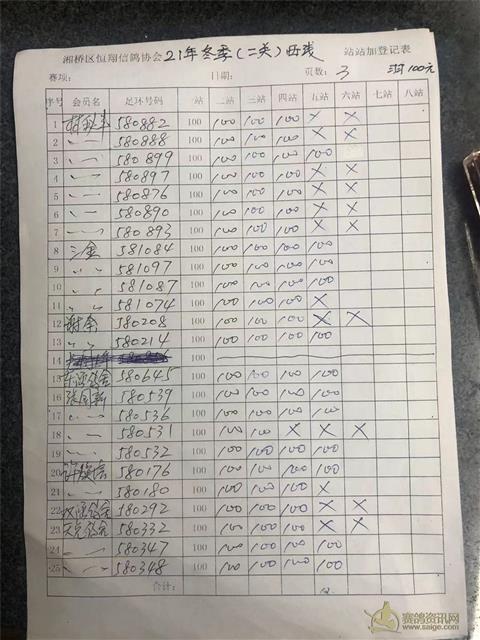 湘桥区恒翔信鸽协会21年冬季(二关)西线 站站加登记表
赛项: 日期: 页数: 3 100元
序号 会员名 足环号码 一站 二站 三站 四站 五站 六站 七站 八站
1 580882 100 100 100 100 X X
2 〃 580888 100 100 100 100 X X
3 〃 580899 100 100 100 100 100
4 〃 580897 100 100 100 100 X X
5 〃 580876 100 100 100 100 X X
6 〃 580890 100 100 100 100 X X
7 〃 580893 100 100 100 100 X X
8 三金 581084 100 100 100 100 100
9 〃 581097 100 100 100 100 100
10 〃 581087 100 100 100 100 100
11 〃 581074 100 100 100 100 X
12 谢余 580208 100 100 100 100 X X
13 〃 580214 100 100 100 100 100
14 100
15 580645 100 100 100 100 100
16 张国新 580539 100 100 100 100 100
17 〃 580536 100 100 100 100 100
18 〃 580531 100 100 100 X X X
19 〃 580532 100 100 100 100 100
20 580176 100 100 100 100 100
21 〃 580180 100 100 100 100 X
22 580292 100 100 100 100 X X
23 580332 100 100 100 100 X X
24 〃 580347 100 100 100 100 100
25 〃 580348 100 100 100 100 100
合计:
赛鸽资讯网
www.saige.com